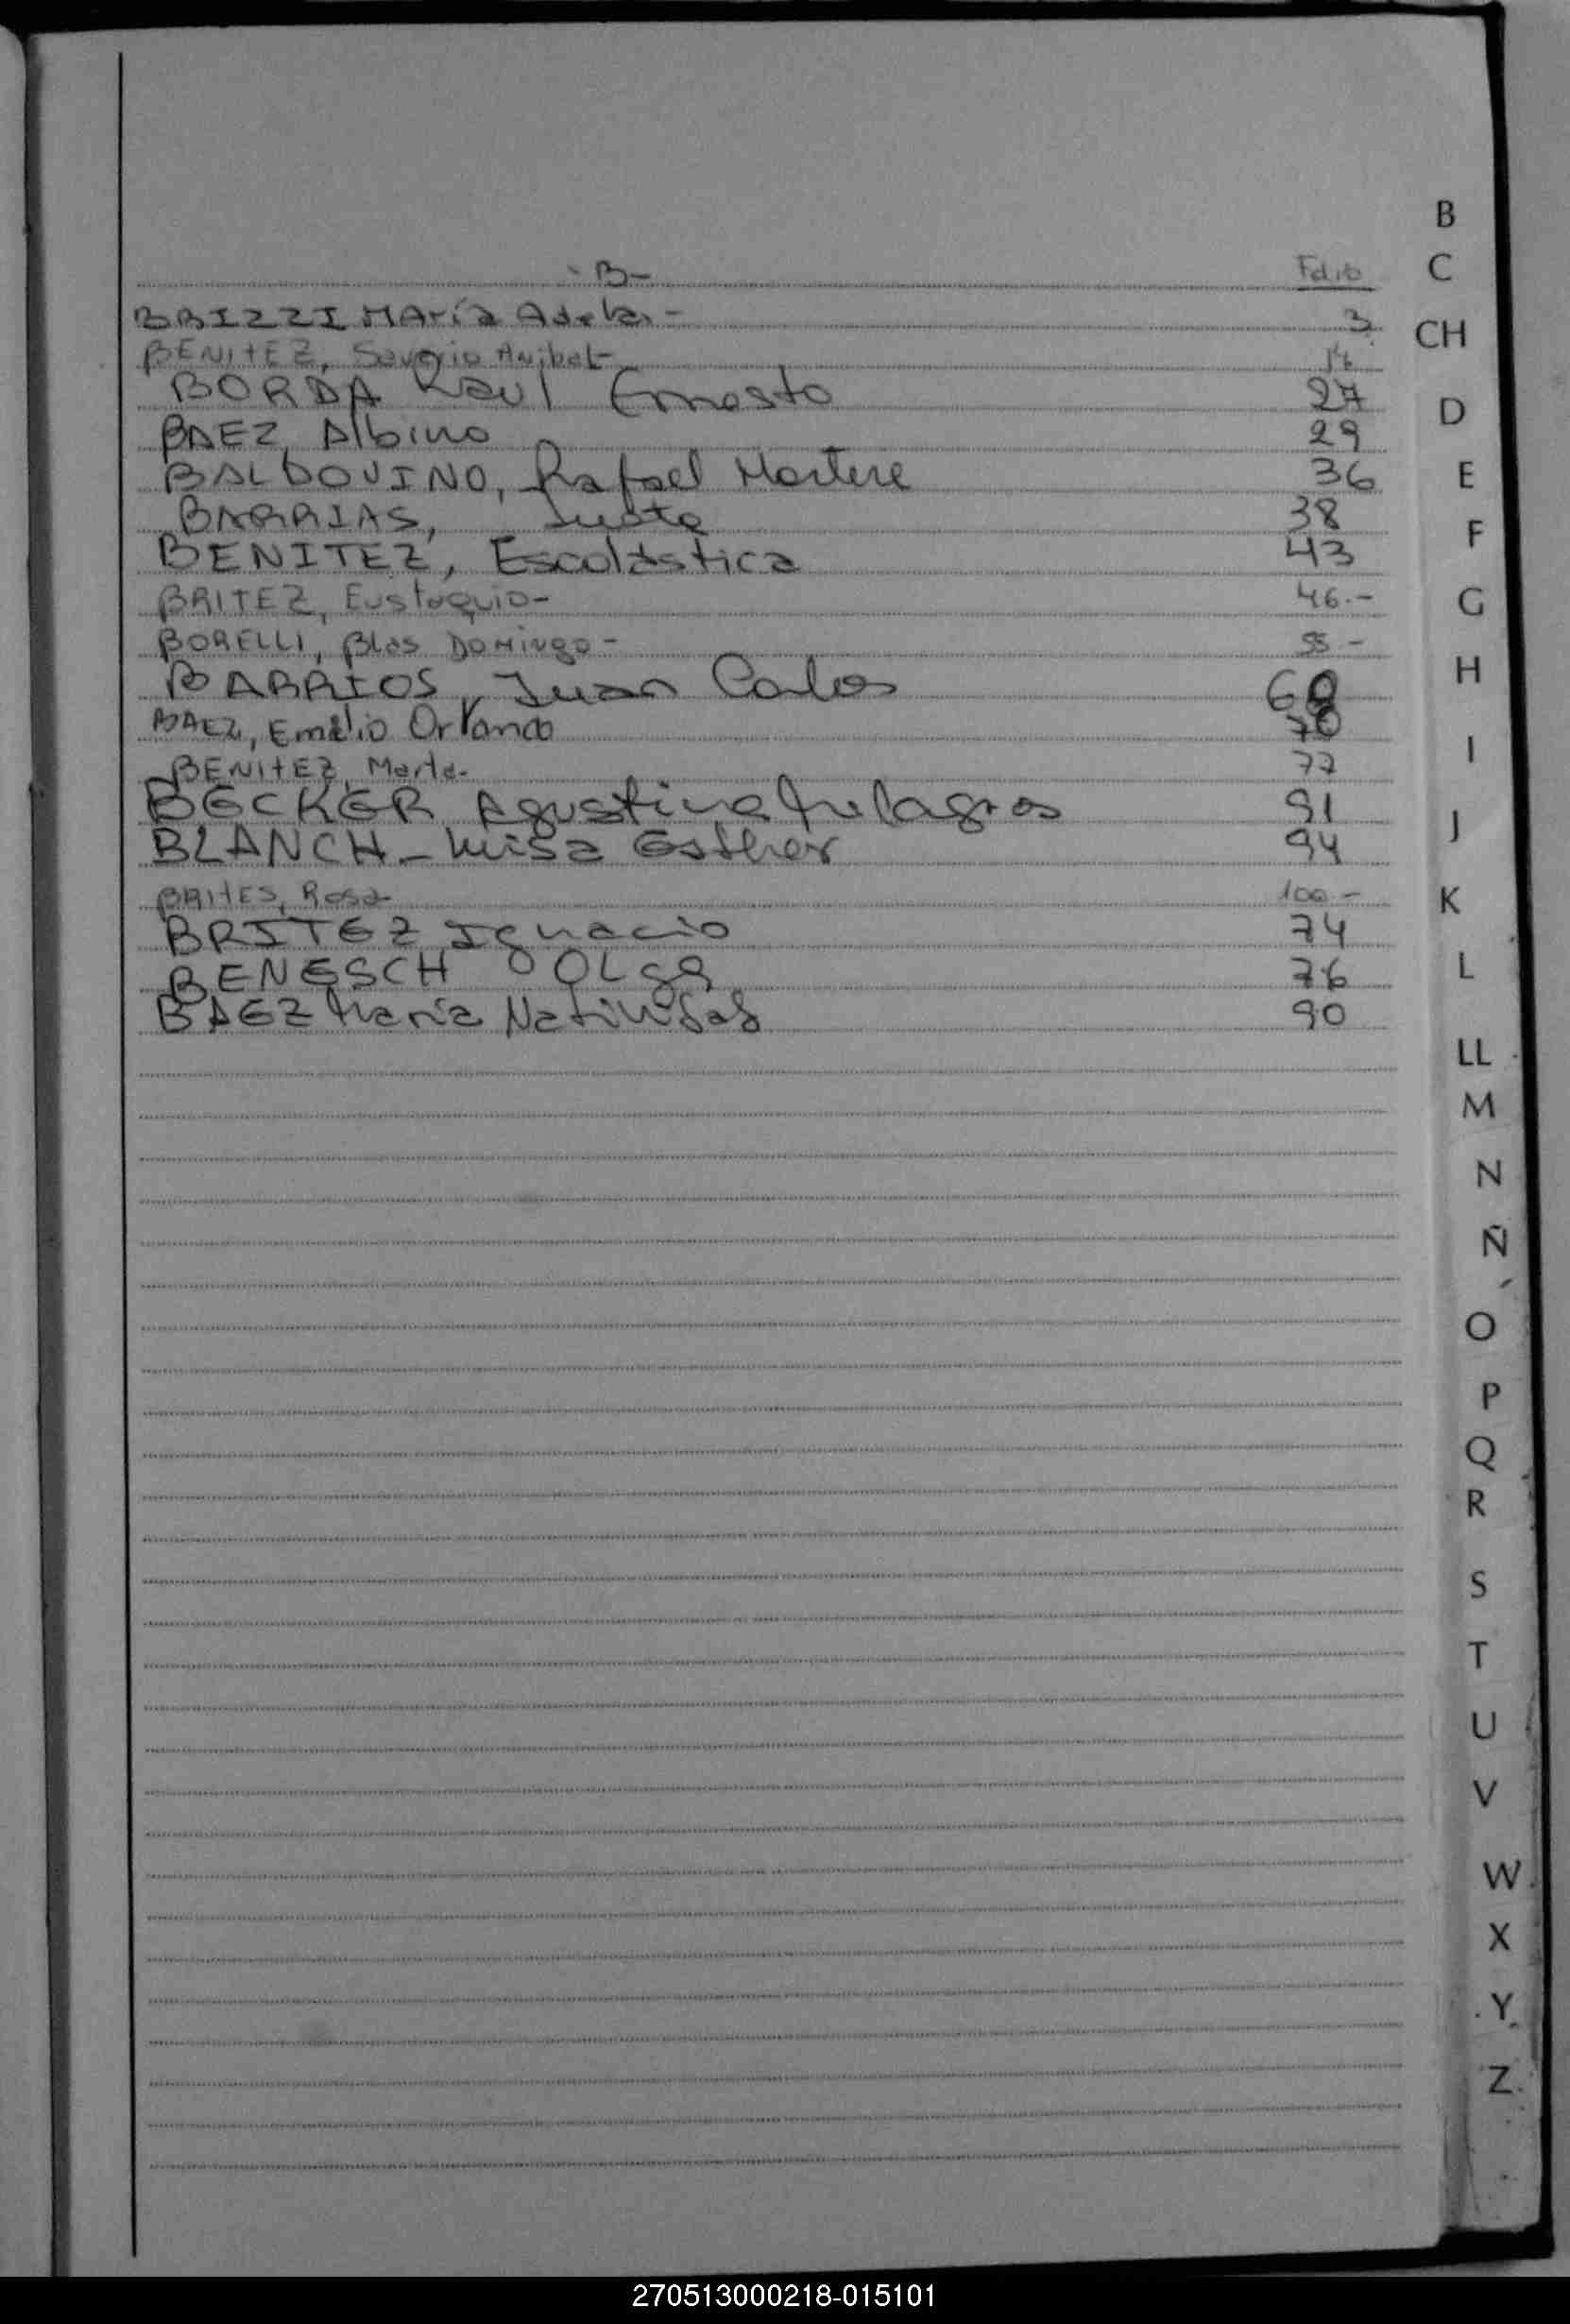 -B-
Folio
BRIZZI MAría Adela- 3
BENITEZ, Saverio Anibal- 14
BORDA Raul Ernesto 27
BAEZ Albino 29
BALDOVINO, Rafael 36
BARRIAS, Justa 38
BENITEZ, Escolástica 43
BRITEZ, Eustaquio- 46.-
BORELLI, Blas Domingo- 55-
BARRIOS, Juan Carlos
BAEZ, Emilio Orlando 70
BENITEZ, Marta- 77
BECKER Agustina Milagros 91
BLANCH- Luisa Esther 94
BRITES, Rosa 100.-
BRITEZ Ignacio 74
BENESCH OLGA 76
BAEZ María Natividad 90
B
C
CH
D
E
F
G
H
I
J
K
L
LL
M
N
Ñ
O
P
Q
R
S
T
U
V
W
X
Y
Z
270513000218-015101